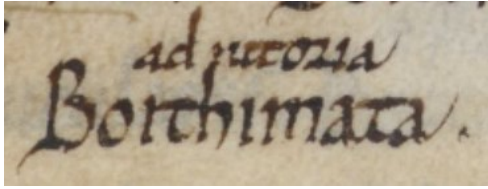 ad iutoria
Boithimata.